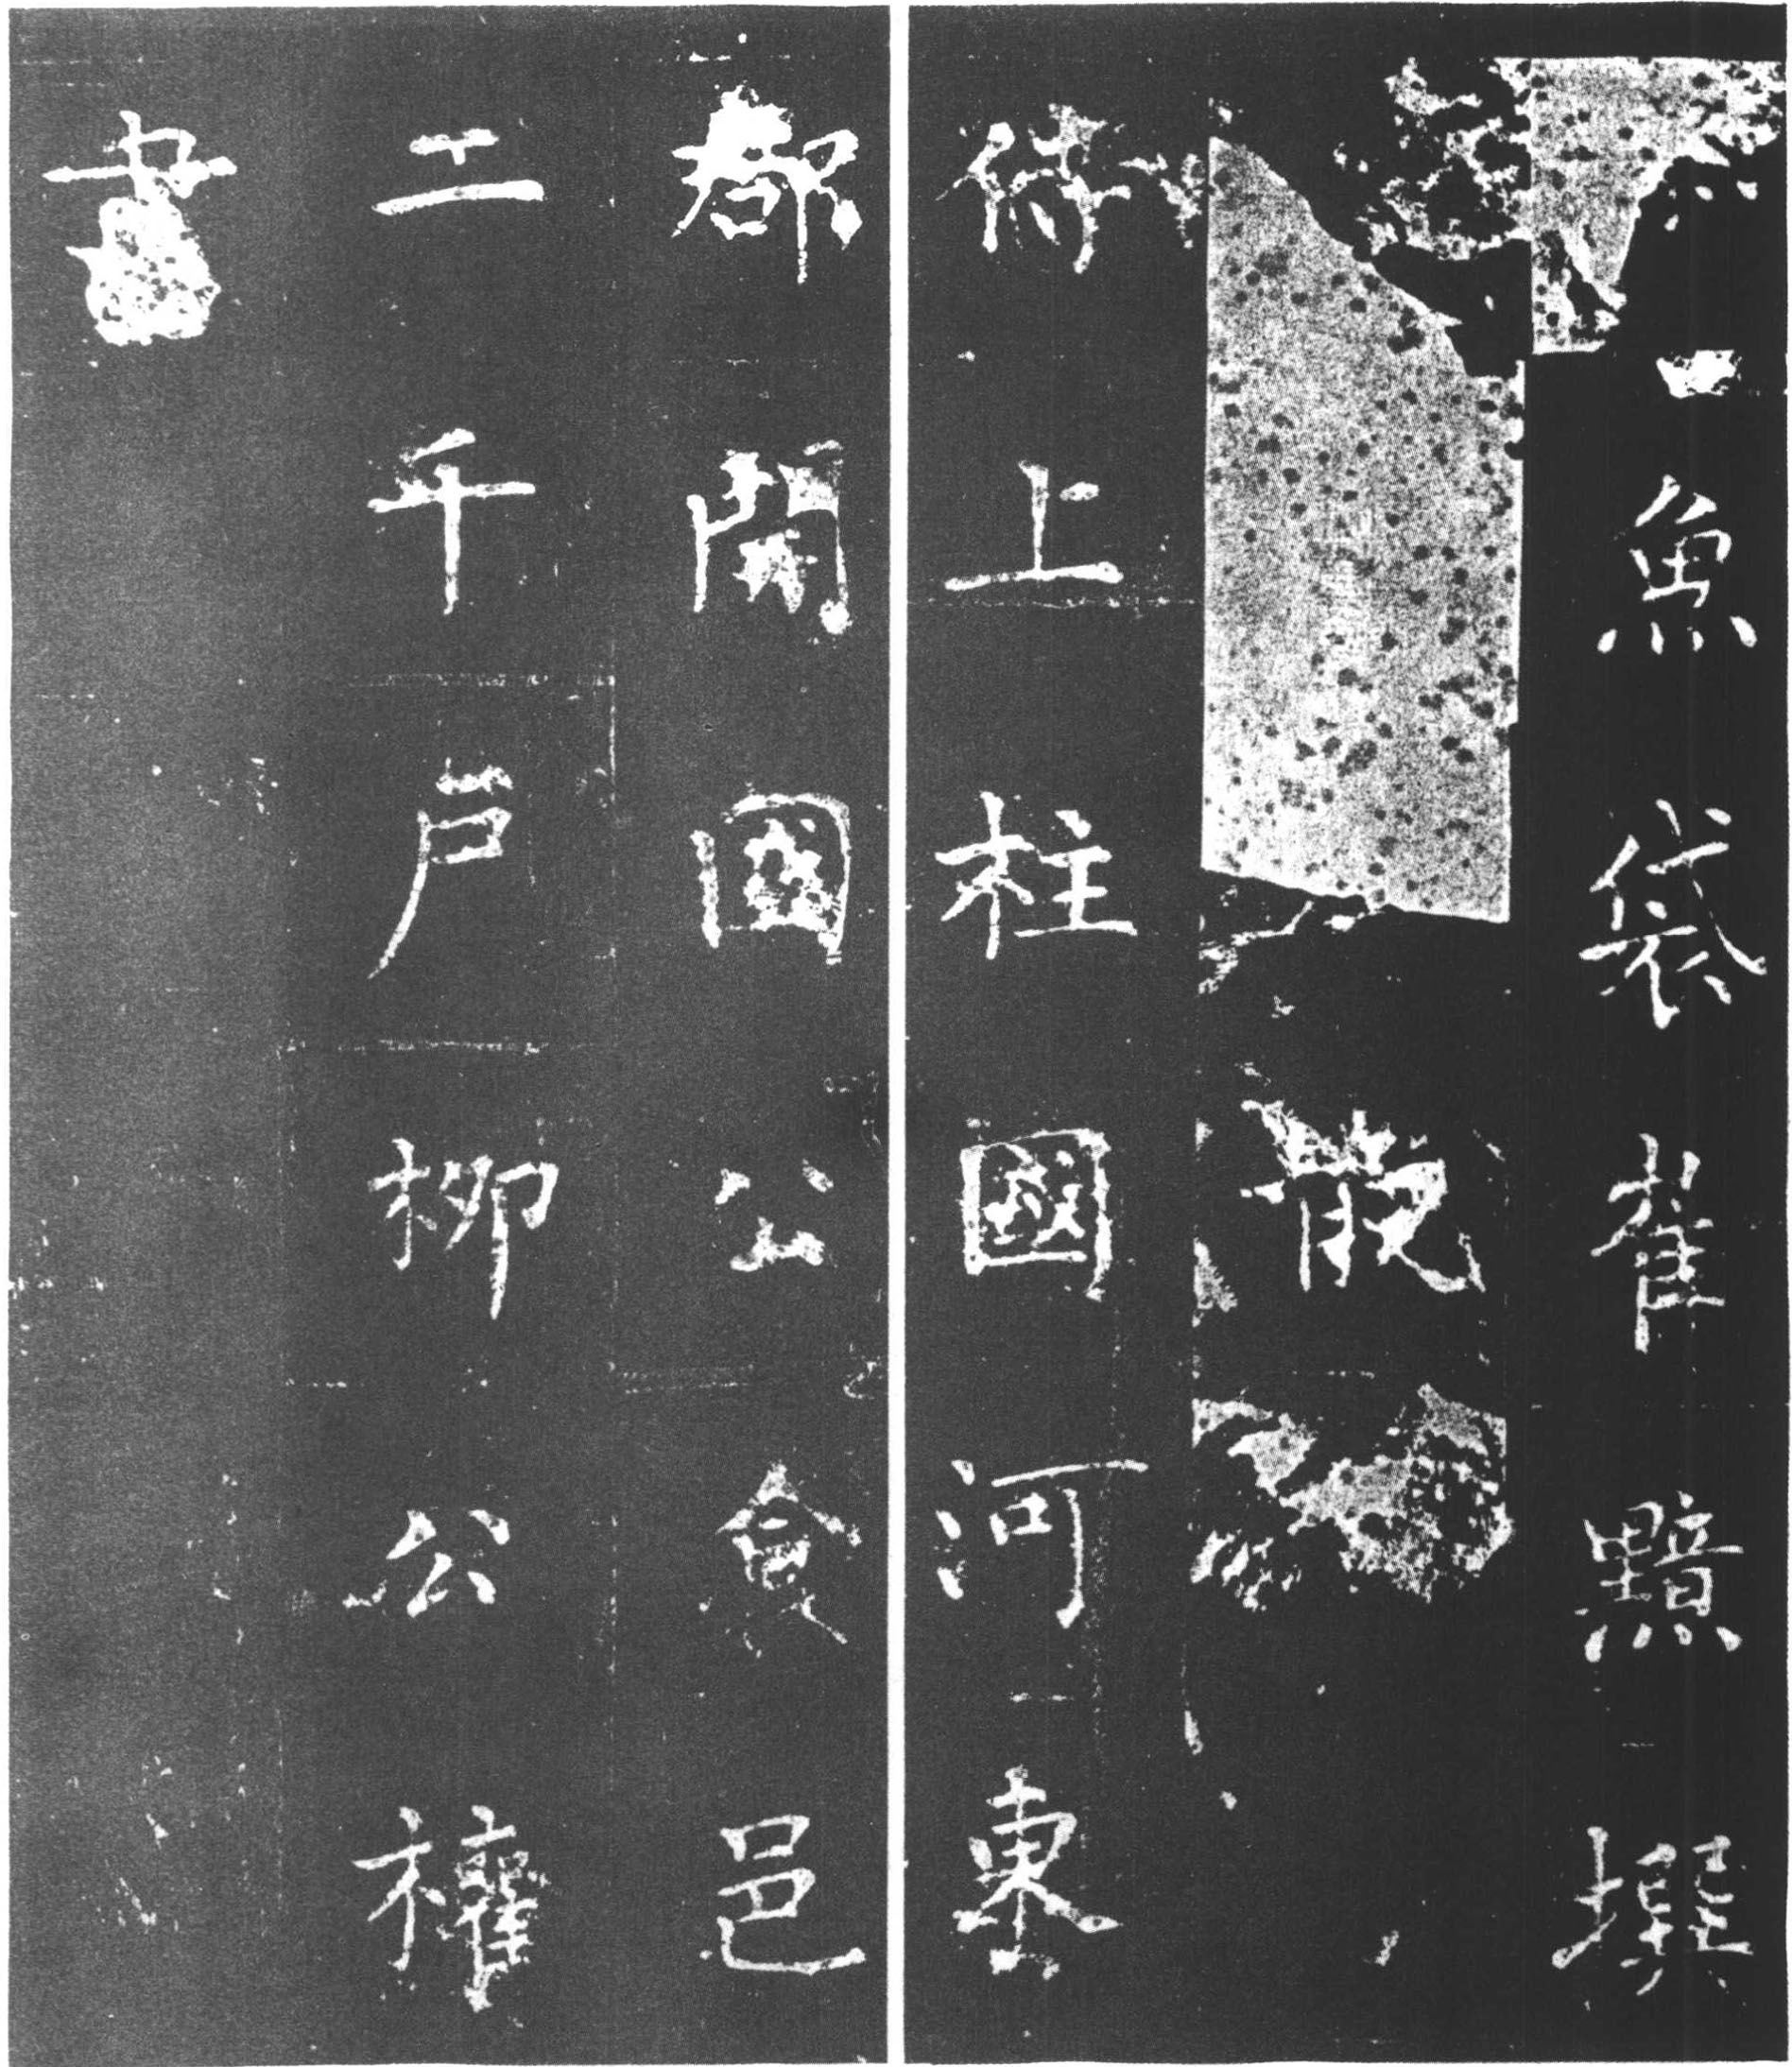 魚袋崔黯撰
散
侍上柱國河東
郡開國公食邑
二千戶柳公權
書